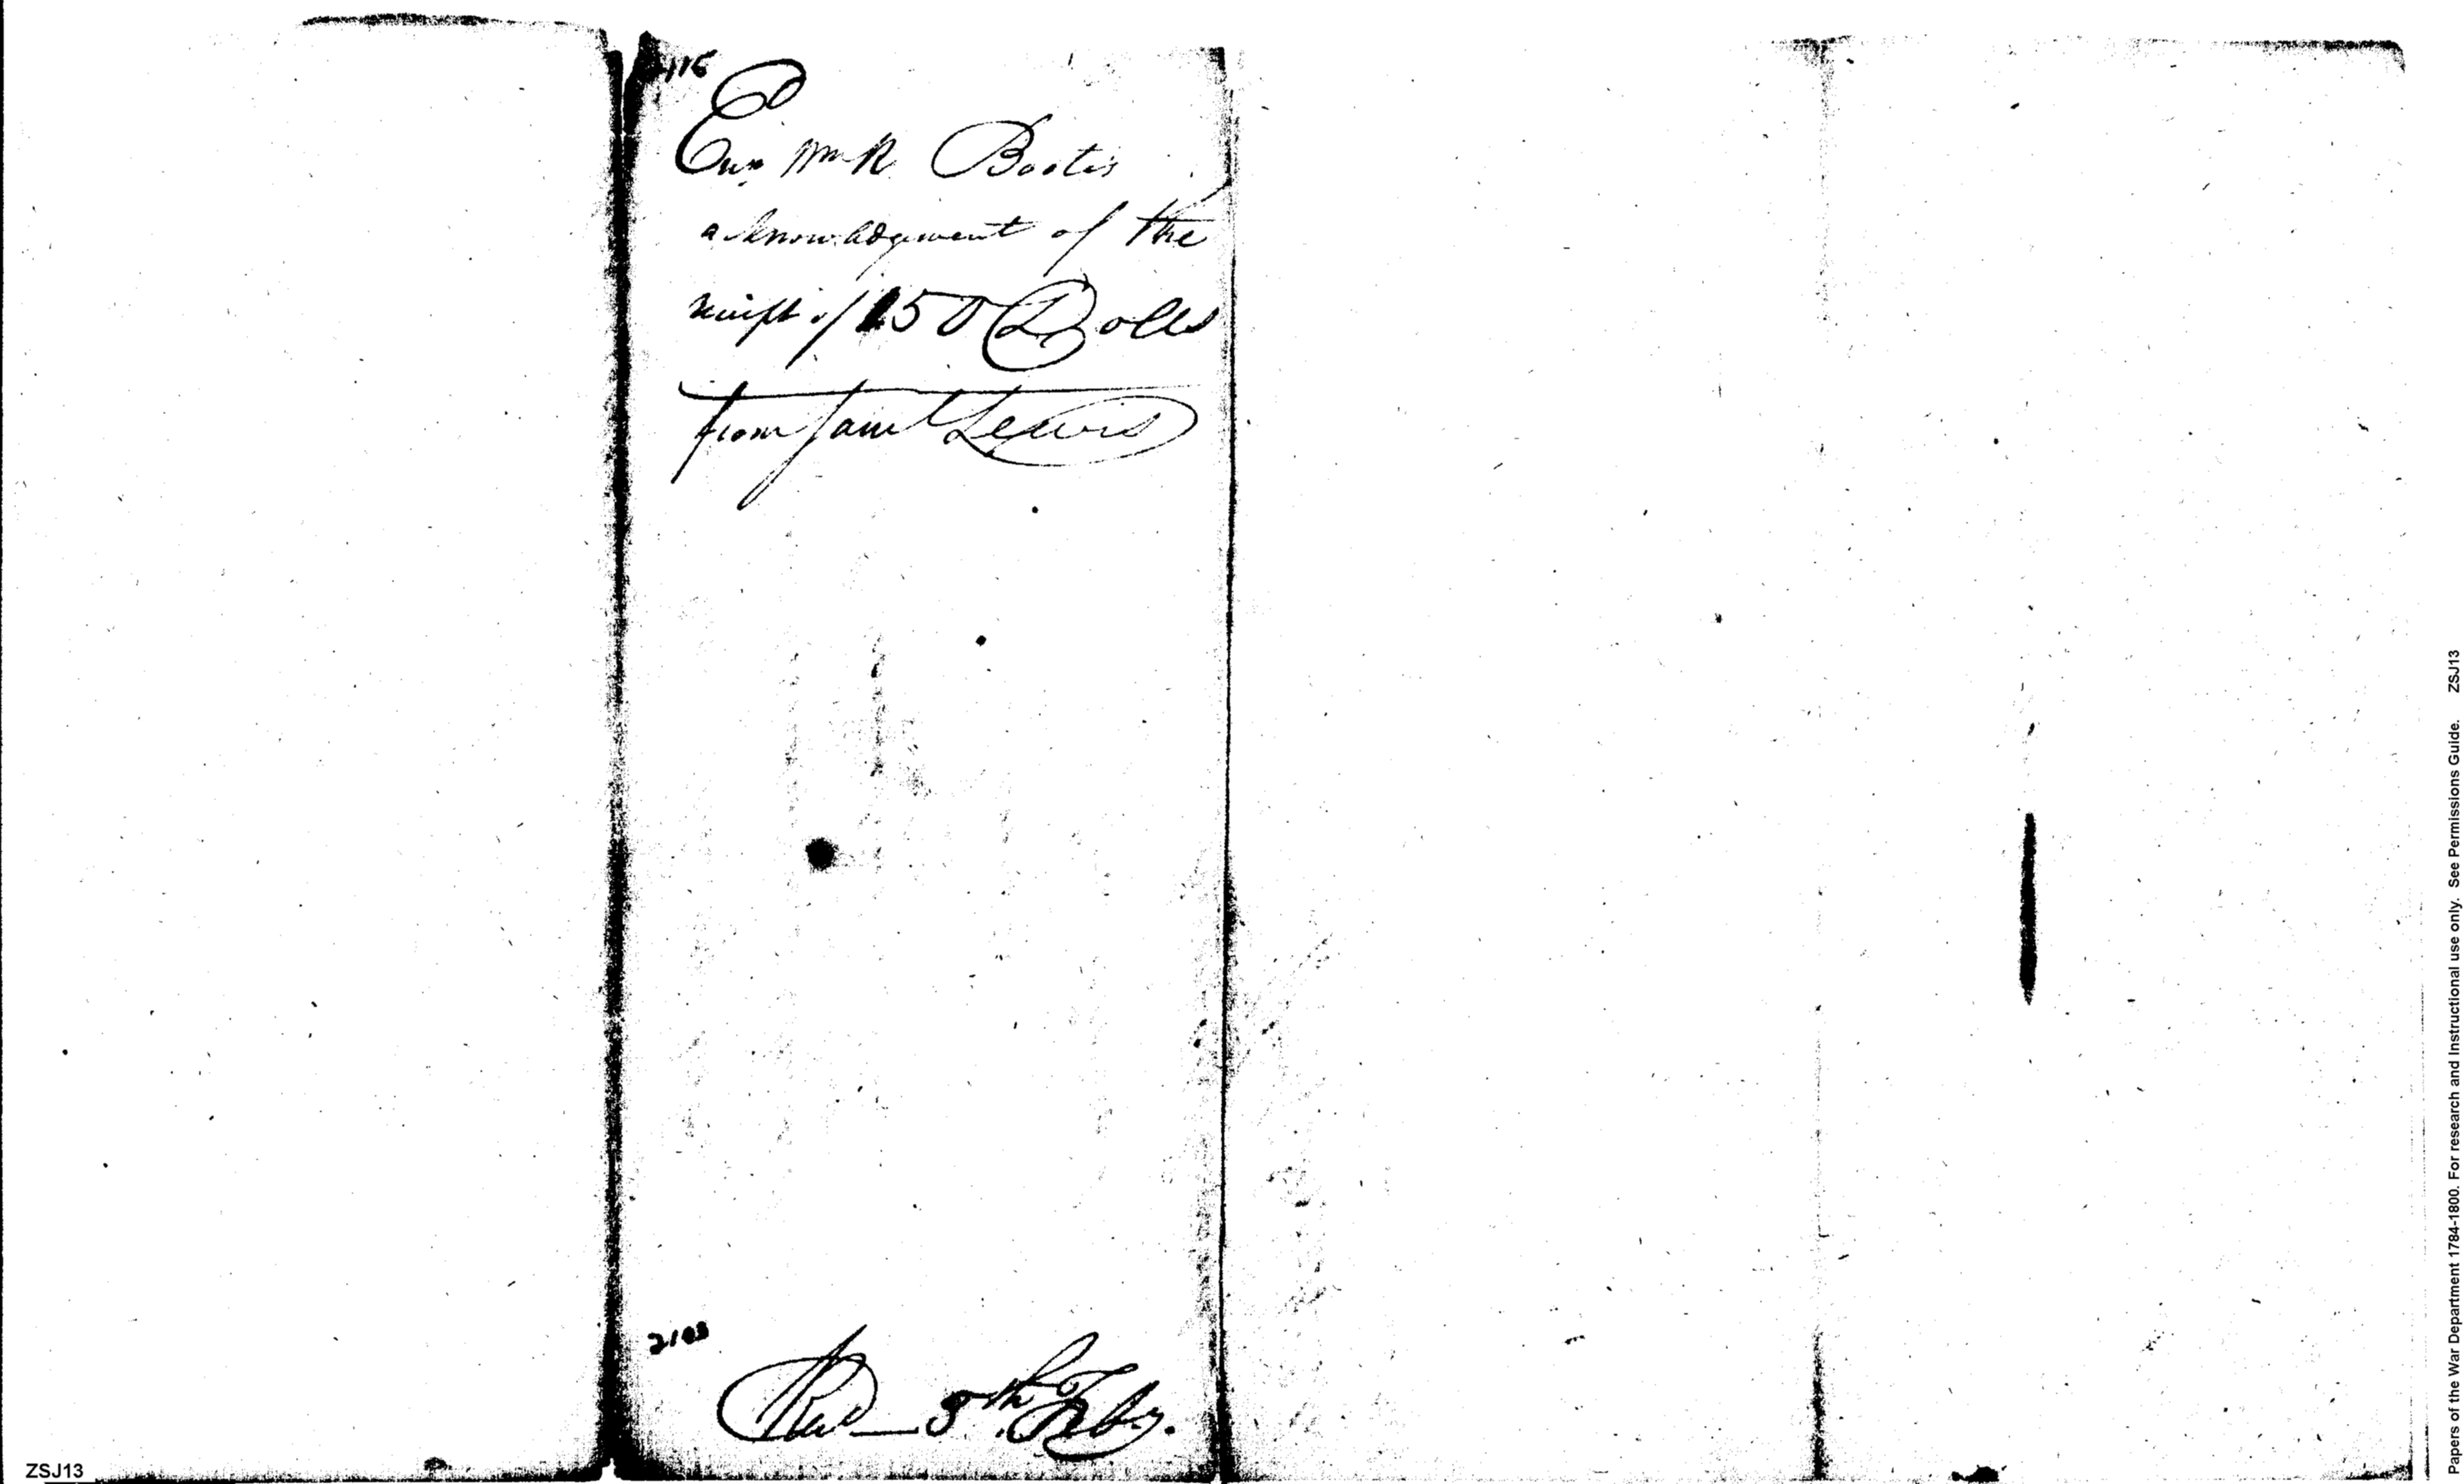 116
Ens Wm R. Boote's
acknowledgement of the
receipt of 150 Dolls
from Saml Lewis
2103
Recd — 8th Feby.
ZSJ13
Papers of the War Department 1784-1800. For research and instructional use only. See Permissions Guide. ZSJ13